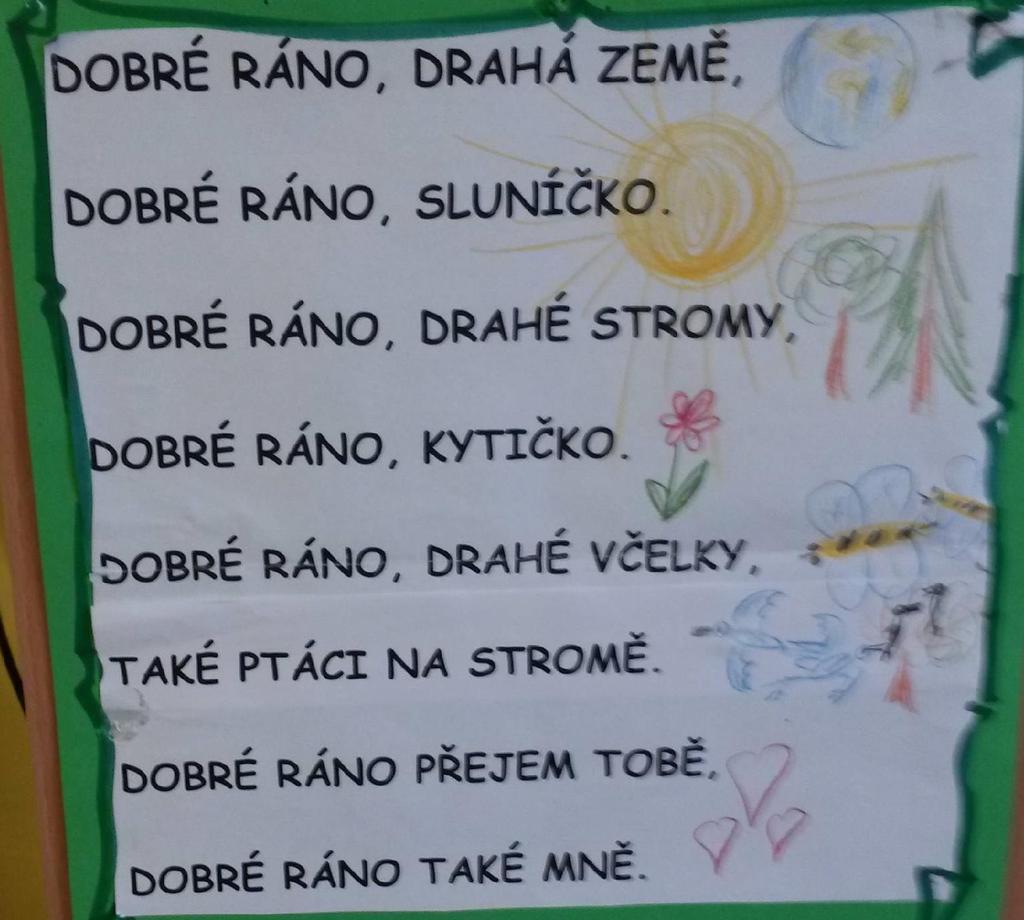 DOBRÉ RÁNO, DRAHÁ ZEMĚ,
DOBRÉ RÁNO, SLUNÍČKO.
DOBRÉ RÁNO, DRAHÉ STROMY,
DOBRÉ RÁNO, KYTIČKO.
DOBRÉ RÁNO, DRAHÉ VČELKY,
TAKÉ PTÁCI NA STROMĚ.
DOBRÉ RÁNO PŘEJEM TOBĚ,
DOBRÉ RÁNO TAKÉ MNĚ.